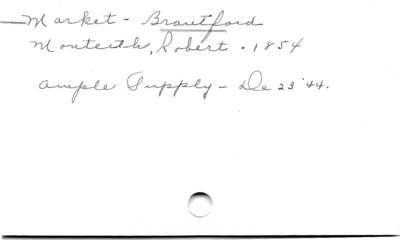 Market - Brantford
Monteith, Robert - 1854
Ample Supply - De 23 '44.